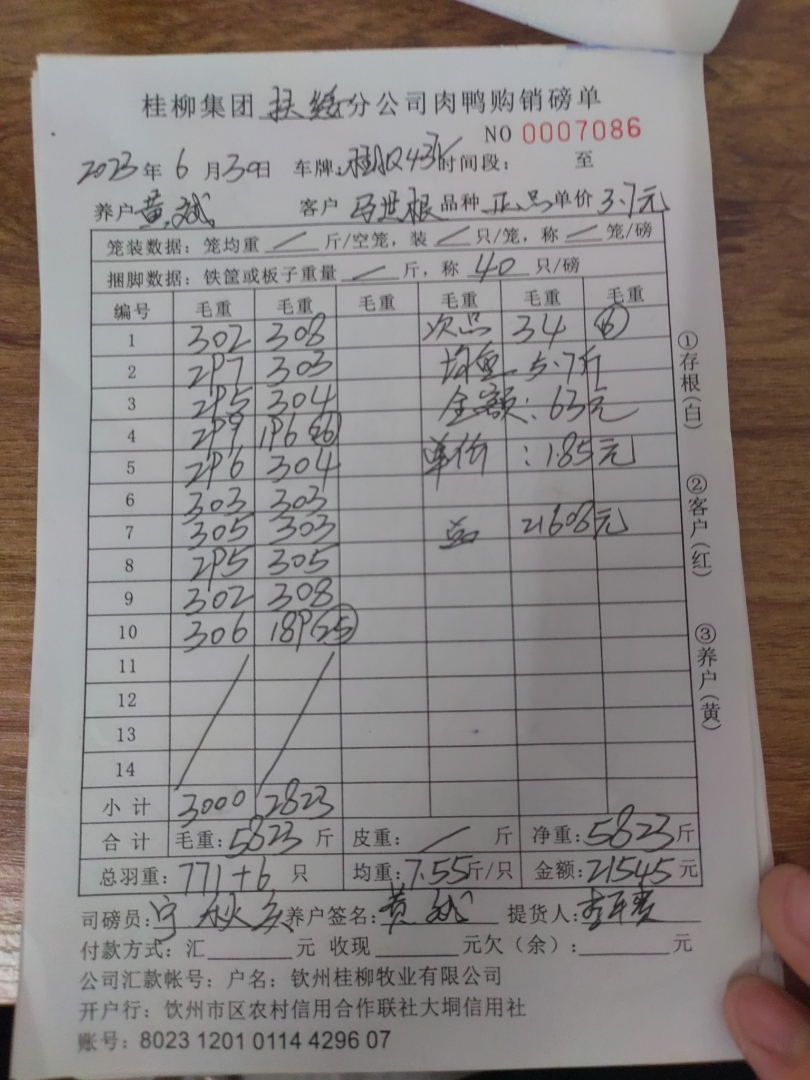 桂柳集团 扶绥 分公司肉鸭购销磅单
NO 0007086
2023 年 6 月 30 日 车牌: 时间段: 至
养户 黄斌 客户 马世根 品种 正品 单价 3.7元
笼装数据: 笼均重 / 斤/空笼, 装 / 只/笼, 称 / 笼/磅
捆脚数据: 铁筐或板子重量 / 斤, 称 40 只/磅
编号 毛重 毛重 毛重 毛重 毛重 毛重
1 302 308 次品 34 ⑥
2 297 303 均重 5.7斤
3 295 304 金额: 63元
4 299 196 ㉖
5 296 304 单价 : 1.85元
6 303 303
7 305 303 总 21608元
8 295 305
9 302 308
10 306 189 ㉕
11
12
13
14
小计 3000 2823
合计 毛重: 5823 斤 皮重: / 斤 净重: 5823 斤
总羽重: 771+6 只 均重: 7.55 斤/只 金额: 21545 元
司磅员: 养户签名: 黄斌 提货人:
付款方式: 汇 元 收现 元欠(余): 元
公司汇款帐号: 户名: 钦州桂柳牧业有限公司
开户行: 饮州市区农村信用合作联社大垌信用社
账号: 8023 1201 0114 4296 07
①存根(白)
②客户(红)
③养户(黄)